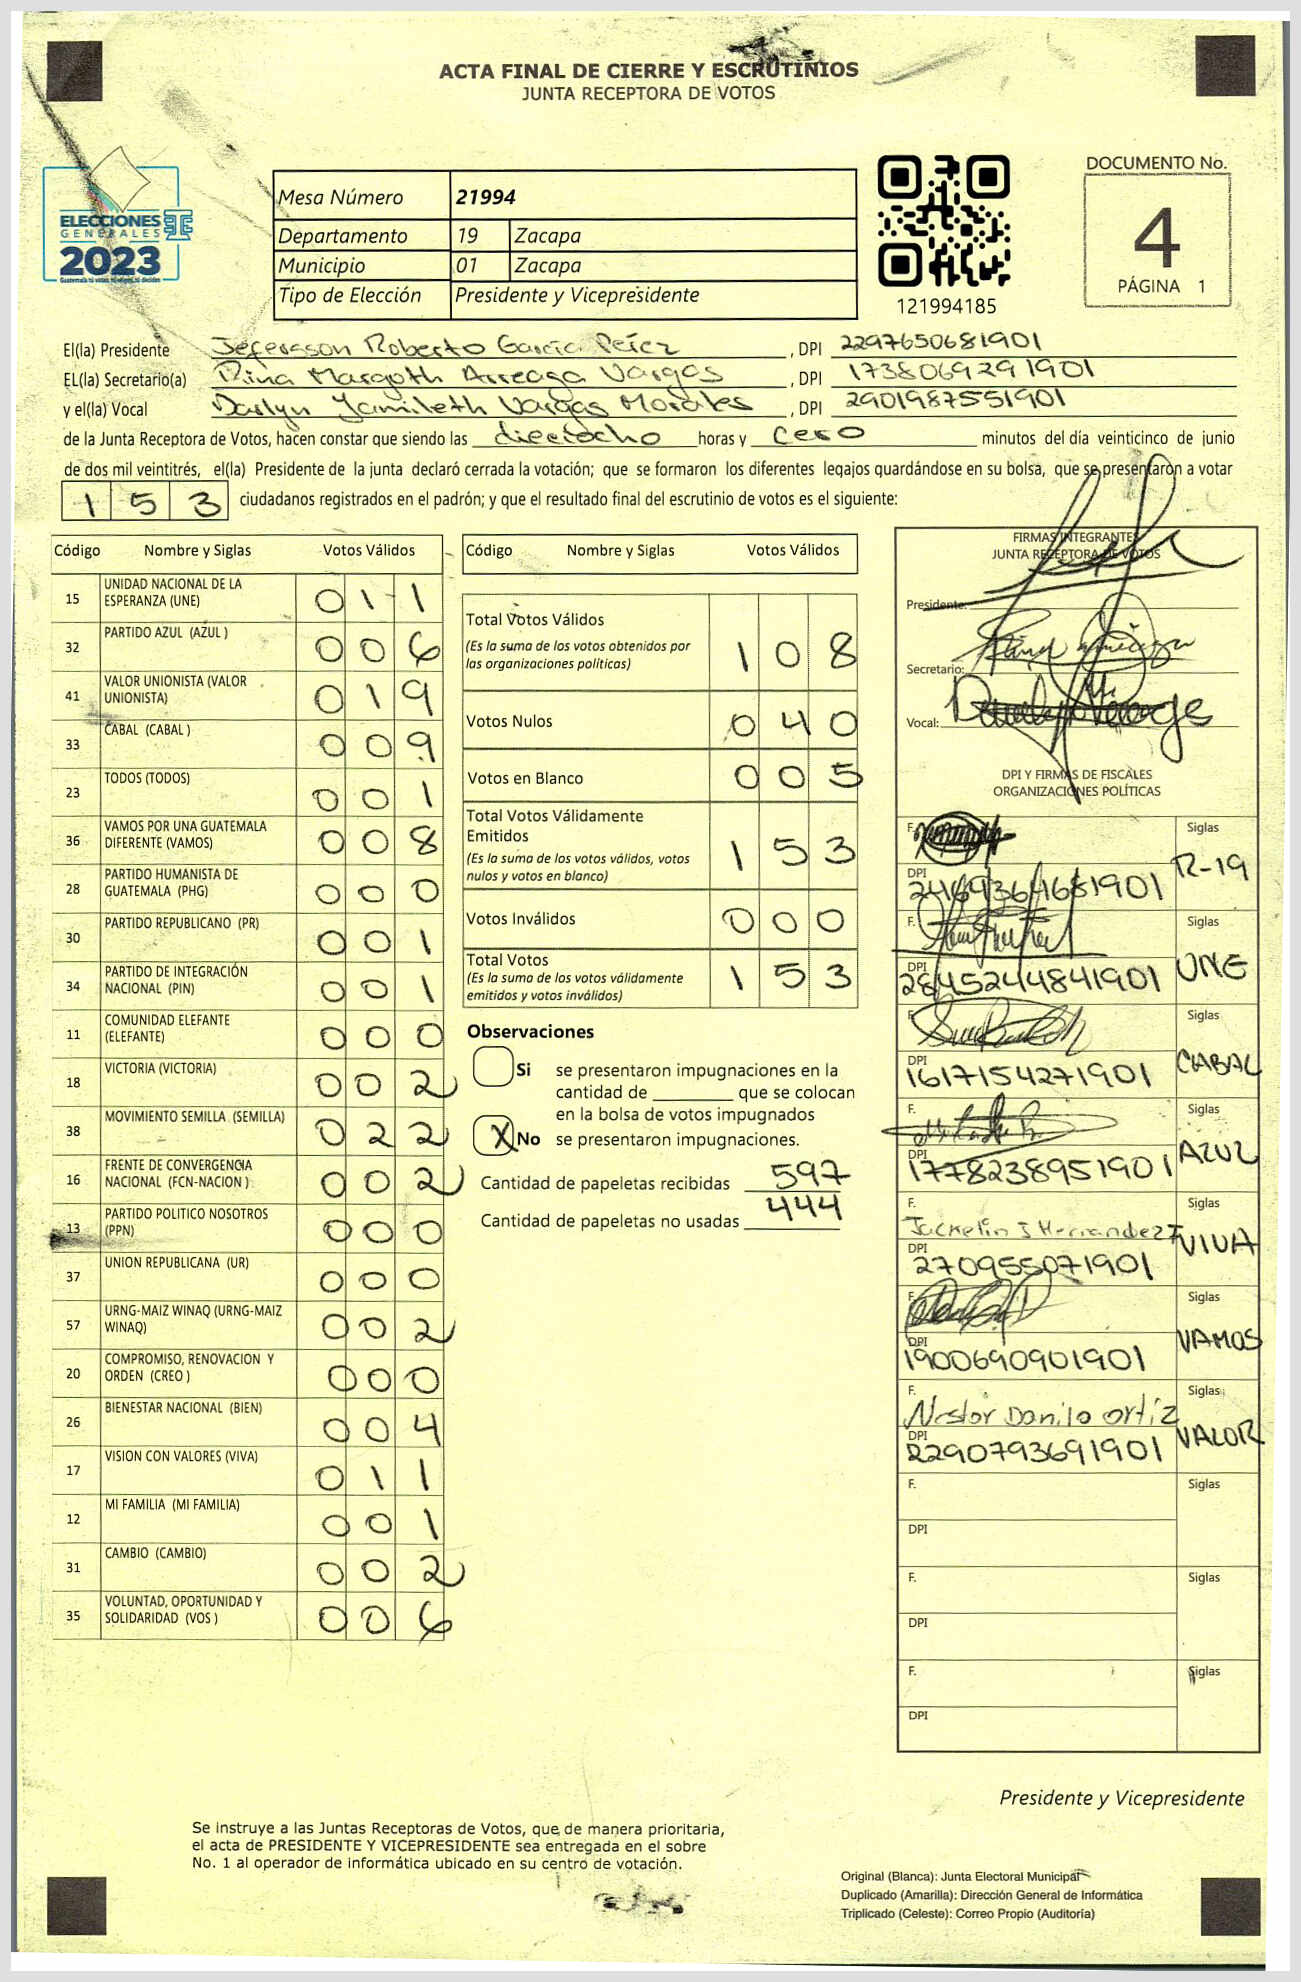 ACTA FINAL DE CIERRE Y ESCRUTINIOS
JUNTA RECEPTORA DE VOTOS
ELECCIONES
GENERALES
2023
Mesa Número 21994
Departamento 19 Zacapa
Municipio 01 Zacapa
Tipo de Elección Presidente y Vicepresidente
121994185
DOCUMENTO No.
4
PÁGINA 1
El(la) Presidente Jefersson Roberto García Pérez , DPI 2297650681901
EL(la) Secretario(a) Rina Margoth Arreaga Vargas , DPI 1738069291901
y el(la) Vocal Darlyn Yamileth Vargas Morales , DPI 2901987551901
de la Junta Receptora de Votos, hacen constar que siendo las dieciocho horas y cero minutos del día veinticinco de junio
de dos mil veintitrés, el(la) Presidente de la junta declaró cerrada la votación; que se formaron los diferentes legajos guardándose en su bolsa, que se presentaron a votar
153 ciudadanos registrados en el padrón; y que el resultado final del escrutinio de votos es el siguiente:
Código Nombre y Siglas Votos Válidos
15 UNIDAD NACIONAL DE LA ESPERANZA (UNE) 011
32 PARTIDO AZUL (AZUL ) 006
41 VALOR UNIONISTA (VALOR UNIONISTA) 019
33 CABAL (CABAL ) 009
23 TODOS (TODOS) 001
36 VAMOS POR UNA GUATEMALA DIFERENTE (VAMOS) 008
28 PARTIDO HUMANISTA DE GUATEMALA (PHG) 000
30 PARTIDO REPUBLICANO (PR) 001
34 PARTIDO DE INTEGRACIÓN NACIONAL (PIN) 001
11 COMUNIDAD ELEFANTE (ELEFANTE) 000
18 VICTORIA (VICTORIA) 002
38 MOVIMIENTO SEMILLA (SEMILLA) 022
16 FRENTE DE CONVERGENCIA NACIONAL (FCN-NACION ) 002
13 PARTIDO POLITICO NOSOTROS (PPN) 000
37 UNION REPUBLICANA (UR) 000
57 URNG-MAIZ WINAQ (URNG-MAIZ WINAQ) 002
20 COMPROMISO, RENOVACION Y ORDEN (CREO ) 000
26 BIENESTAR NACIONAL (BIEN) 004
17 VISION CON VALORES (VIVA) 011
12 MI FAMILIA (MI FAMILIA) 001
31 CAMBIO (CAMBIO) 002
35 VOLUNTAD, OPORTUNIDAD Y SOLIDARIDAD (VOS ) 006
Código Nombre y Siglas Votos Válidos
Total Votos Válidos 108
(Es la suma de los votos obtenidos por
las organizaciones políticas)
Votos Nulos 040
Votos en Blanco 005
Total Votos Válidamente
Emitidos 153
(Es la suma de los votos válidos, votos
nulos y votos en blanco)
Votos Inválidos 000
Total Votos 153
(Es la suma de los votos válidamente
emitidos y votos inválidos)
Observaciones
Si se presentaron impugnaciones en la
cantidad de ________ que se colocan
en la bolsa de votos impugnados
X No se presentaron impugnaciones.
Cantidad de papeletas recibidas 597
Cantidad de papeletas no usadas 444
FIRMAS INTEGRANTES
JUNTA RECEPTORA DE VOTOS
Presidente:
Secretario:
Vocal:
DPI Y FIRMAS DE FISCALES
ORGANIZACIONES POLÍTICAS
F. Siglas R-19
DPI 2469364681901
F. Siglas UNE
DPI 2845244841901
F. Siglas CABAL
DPI 1617154271901
F. Siglas AZUL
DPI 1778238951901
F. Jackelin J Hernandez Siglas VIVA
DPI 270955071901
F. Siglas VAMOS
DPI 1900690901901
F. Nestor Danilo Ortiz Siglas VALOR
DPI 2290793691901
F. Siglas
DPI
F. Siglas
DPI
F. Siglas
DPI
Presidente y Vicepresidente
Se instruye a las Juntas Receptoras de Votos, que de manera prioritaria,
el acta de PRESIDENTE Y VICEPRESIDENTE sea entregada en el sobre
No. 1 al operador de informática ubicado en su centro de votación.
Original (Blanca): Junta Electoral Municipal
Duplicado (Amarilla): Dirección General de Informática
Triplicado (Celeste): Correo Propio (Auditoría)